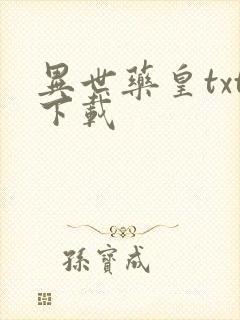 異世藥皇txt
下載
孫寶成